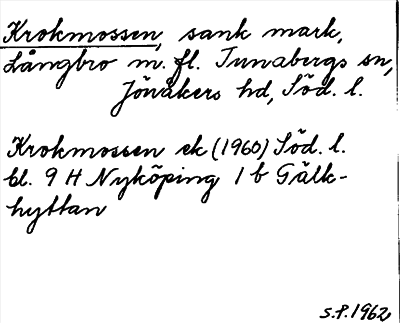 Krokmossen, sank mark,
Långbro m. fl. Tunabergs sn,
Jönåkers hd, Söd. l.
Krokmossen ek (1960) Söd. l.
bl. 9 H Nyköping 1 b Gälk-
hyttan
S.P. 1962